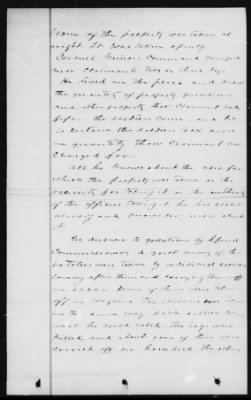 None of the property was taken at
night. It was taken openly.
Colonel Command camped
near Claimants two or three days
He lived on the place and knew
the quantity of property
and other property that Claimant had
before the soldiers came and he
is certain the soldiers took more
in quantity than Claimant has
Charged for.
All he knows about the uses for
which the property was taken or the
necessity for taking it or the authority
of the officers taking it he has stated
already and knows no more about
it.
In answer to questions by Special
Commissioner a great many of the
potatoes were taken by individual
coming after them and carrying them off
in sacks some of them were taken
off in wagons the
in the same way, each soldier
what he could catch. the hogs were
killed and about four of them were
carried off on horseback the other